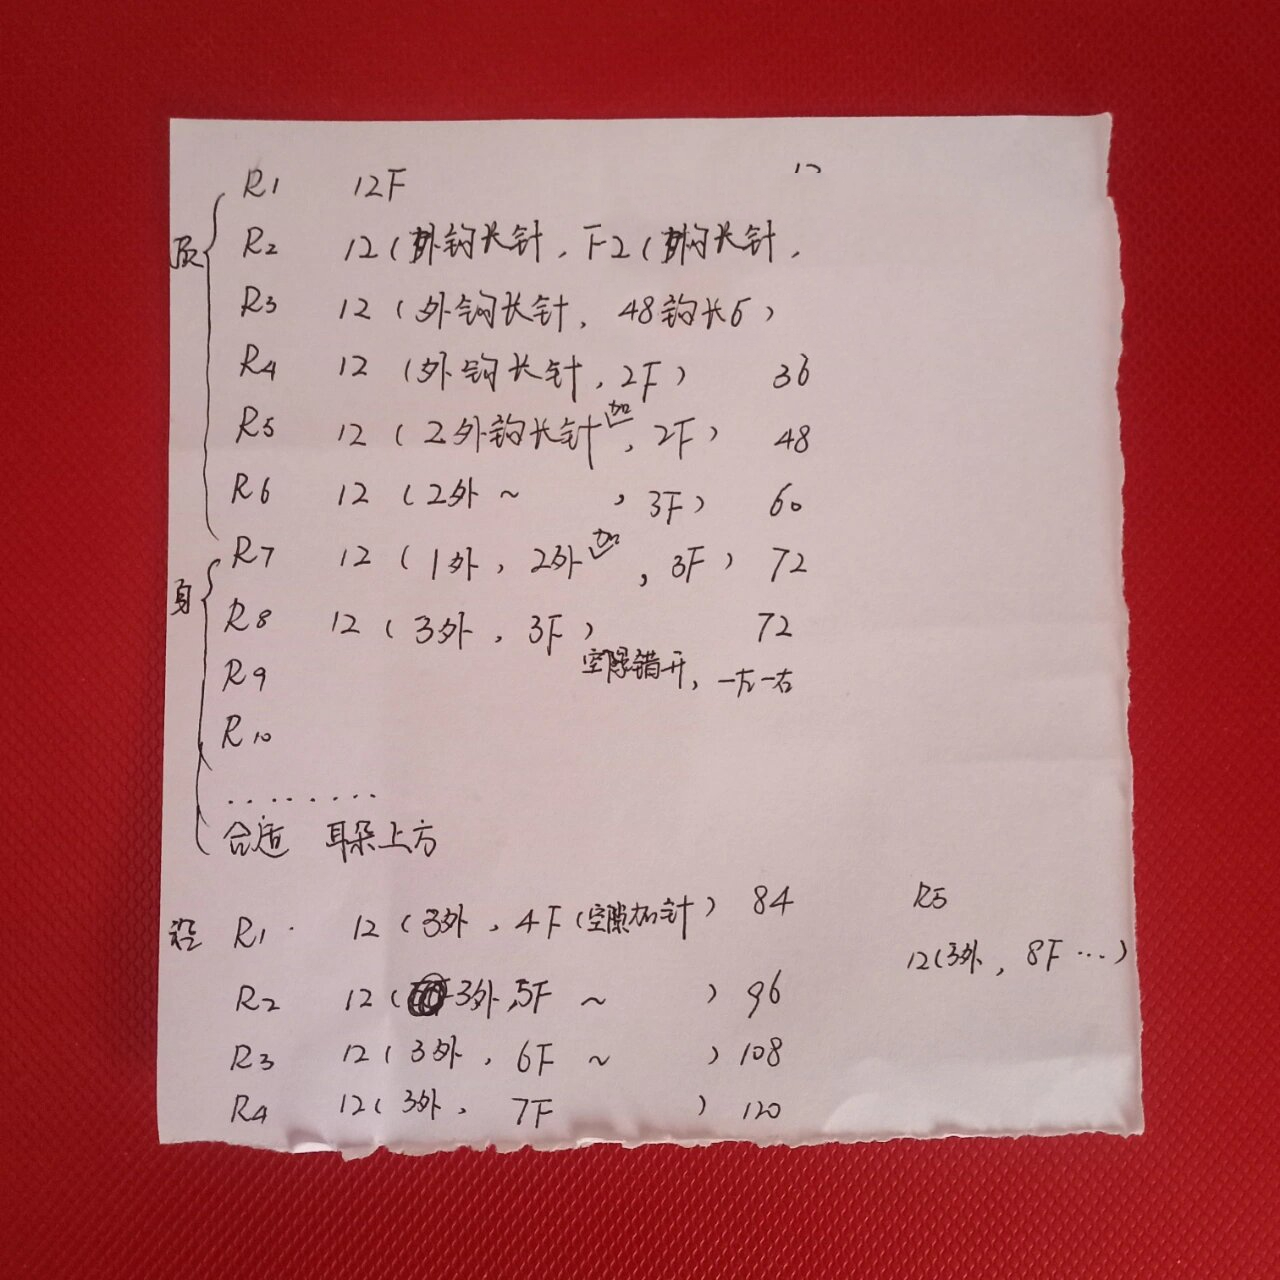 R1 12F 12
顶 R2 12(外钩长针, F2(外钩长针,
R3 12(外钩长针, 48钩长6)
R4 12(外钩长针, 2F) 36
R5 12(2外钩长针加, 2F) 48
R6 12(2外~ , 3F) 60
R7 12(1外, 2外加, 3F) 72
身 R8 12(3外, 3F) 72
R9 空隙错开, 一左一右
R10
........
合适 耳朵上方
R1. 12(3外, 4F(空隙加针) 84
R2 12(3外,5F ~ ) 96
R3 12(3外, 6F ~ ) 108
R4 12(3外, 7F ) 120
R5
12(3外, 8F...)